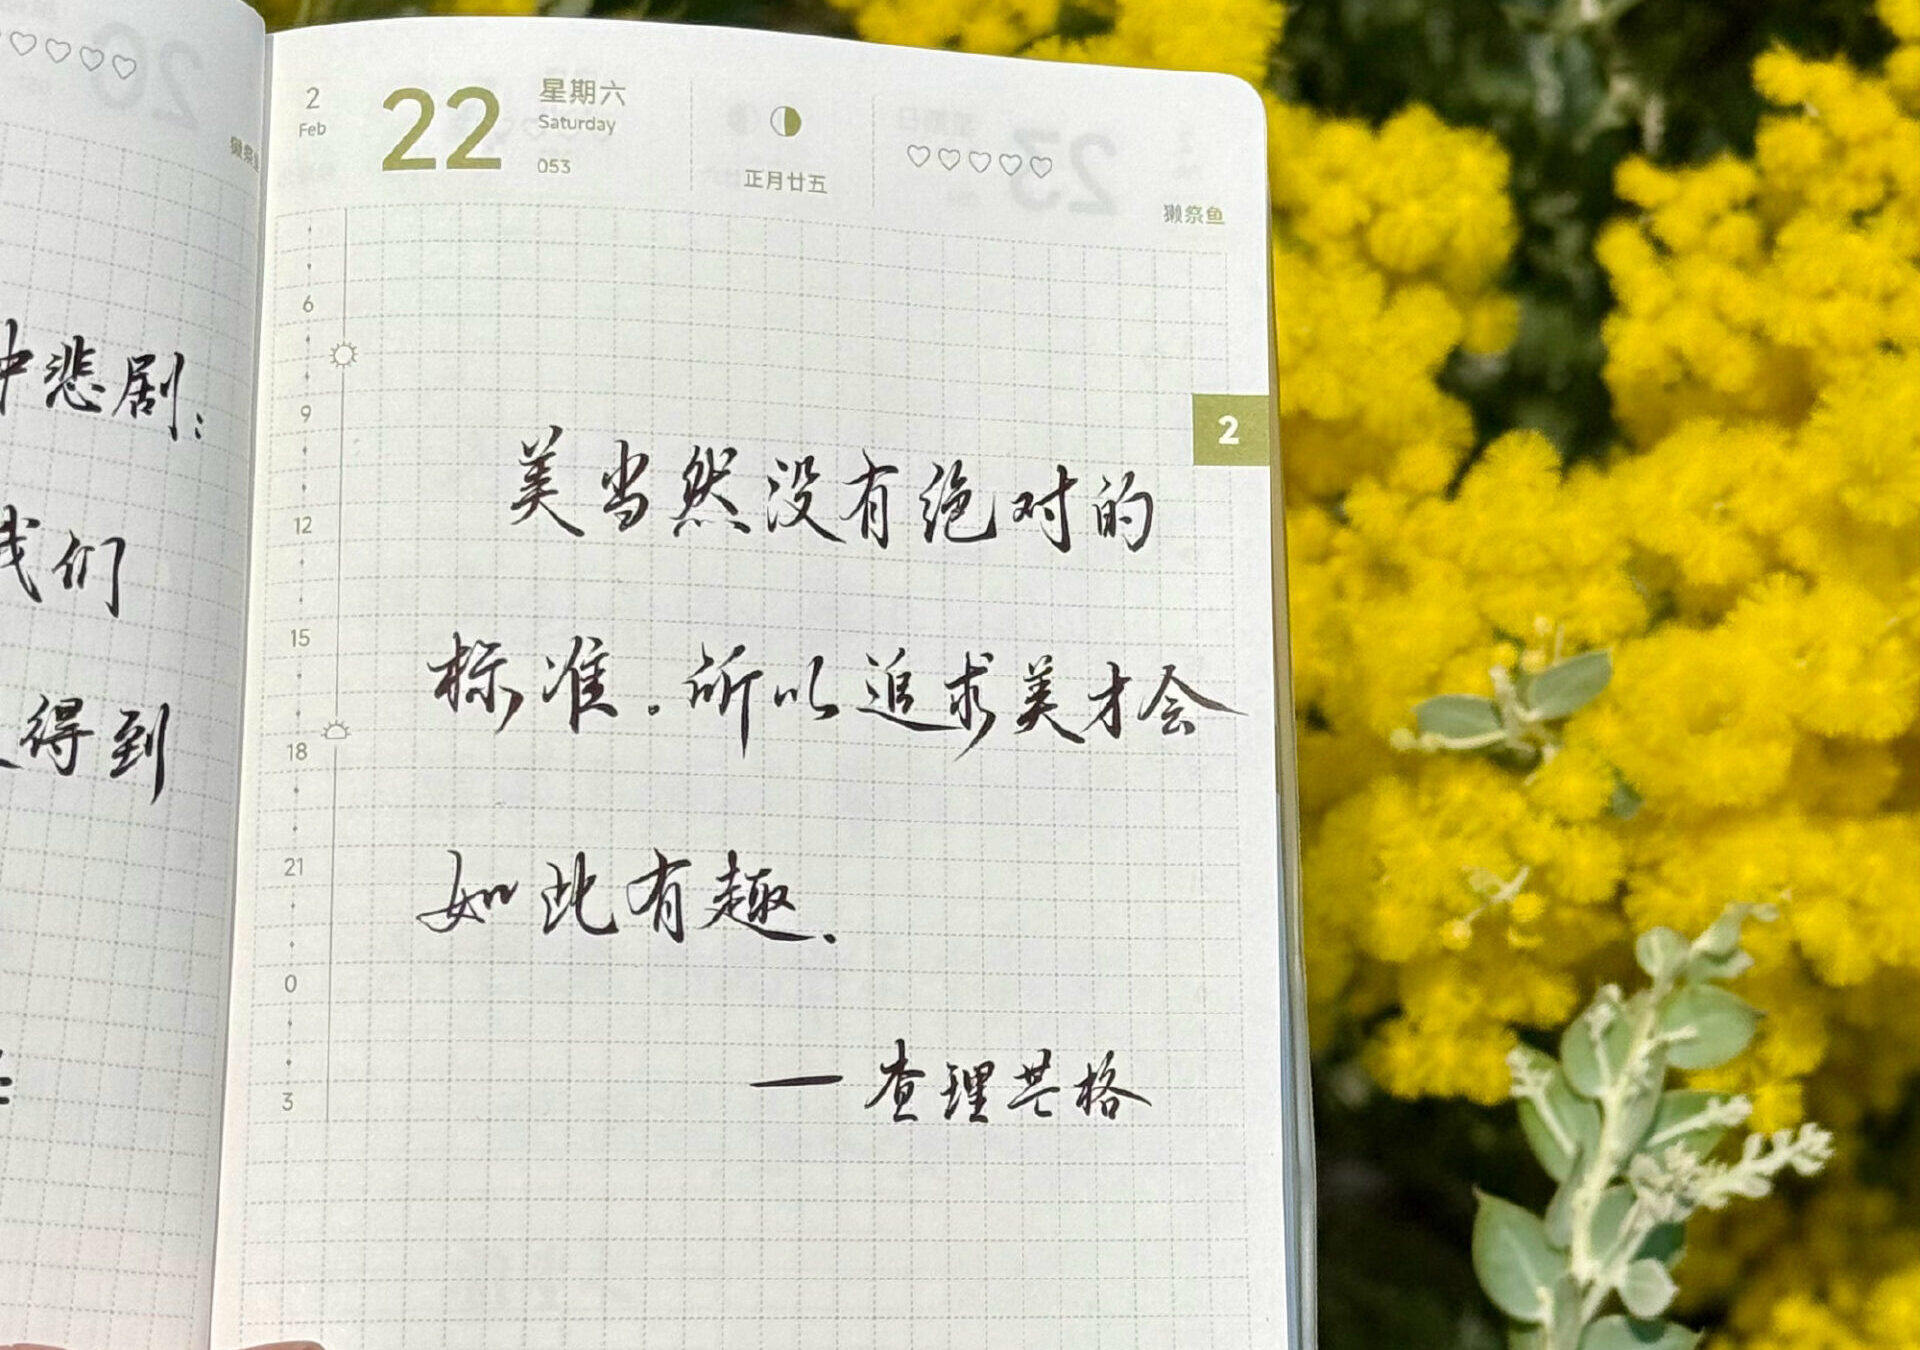 中悲剧：
我们
得到
獭祭鱼
2
Feb
22
星期六
Saturday
053
正月廿五
獭祭鱼
2
6
9
12
15
18
21
0
3
美当然没有绝对的
标准．所以追求美才会
如此有趣．
—查理芒格